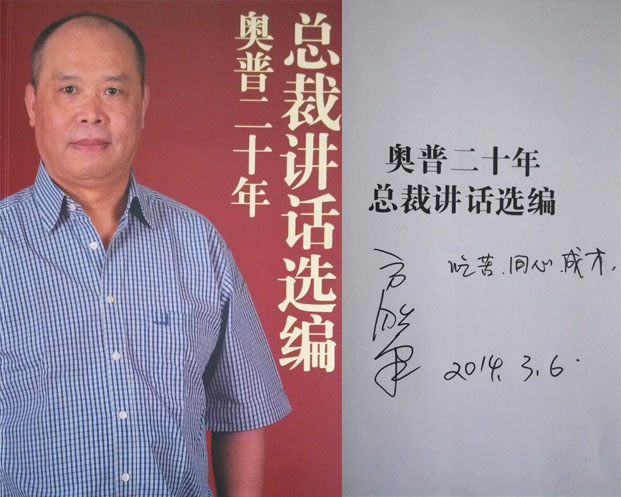 总裁讲话选编
奥普二十年
奥普二十年
总裁讲话选编
吃苦.同心.成才,
方胜康
2014.3.6.